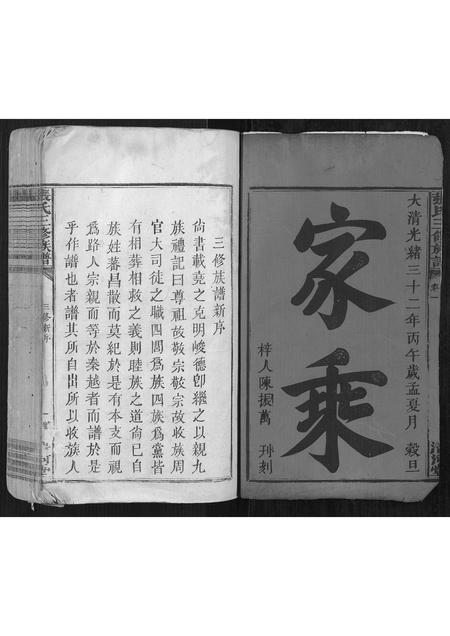 張氏三修族譜
大清光緒三十二年丙午歲孟夏月 穀旦
家乘
梓人陳振萬 刊刻
三修族譜新序
尚書載堯之克明峻德卽繼之以親九
族禮記曰尊祖故敬宗敬宗故收族周
官大司徒之職四閭爲族四族爲黨皆
有相葬相救之義則睦族之道尙已自
族姓蕃昌散而莫紀於是有本支而視
爲路人宗親而等於秦越者而譜於是
乎作譜也者譜其所自出所以收族人
張氏三修族譜
三修新序